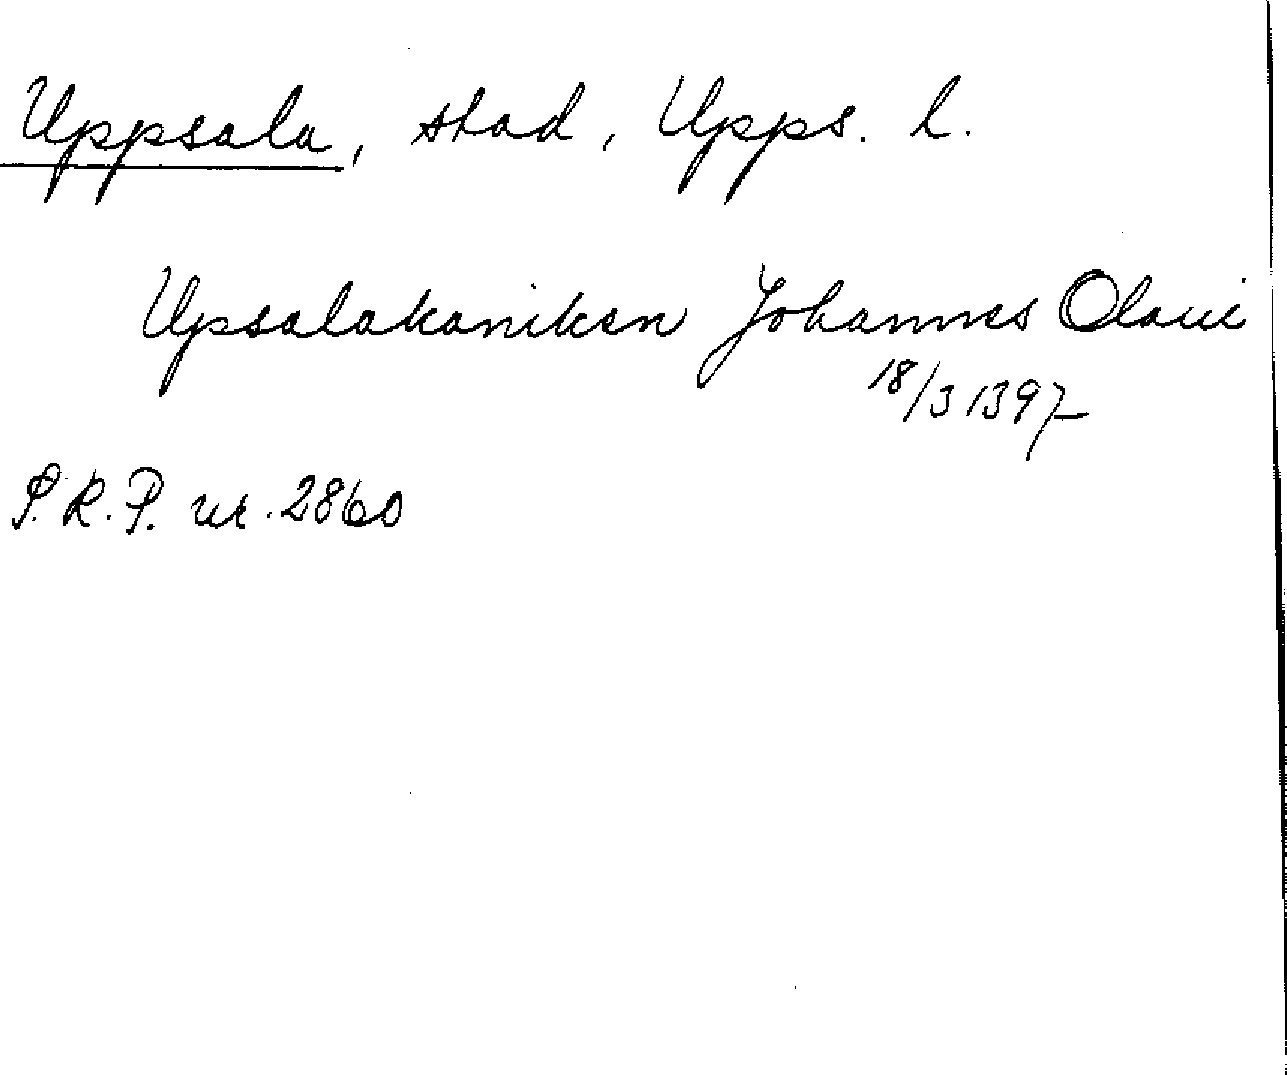 Uppsala, stad, Upps. l.
Upsalakaniken Johannes Olaui
18/3 1397
S.R.P. nr. 2860